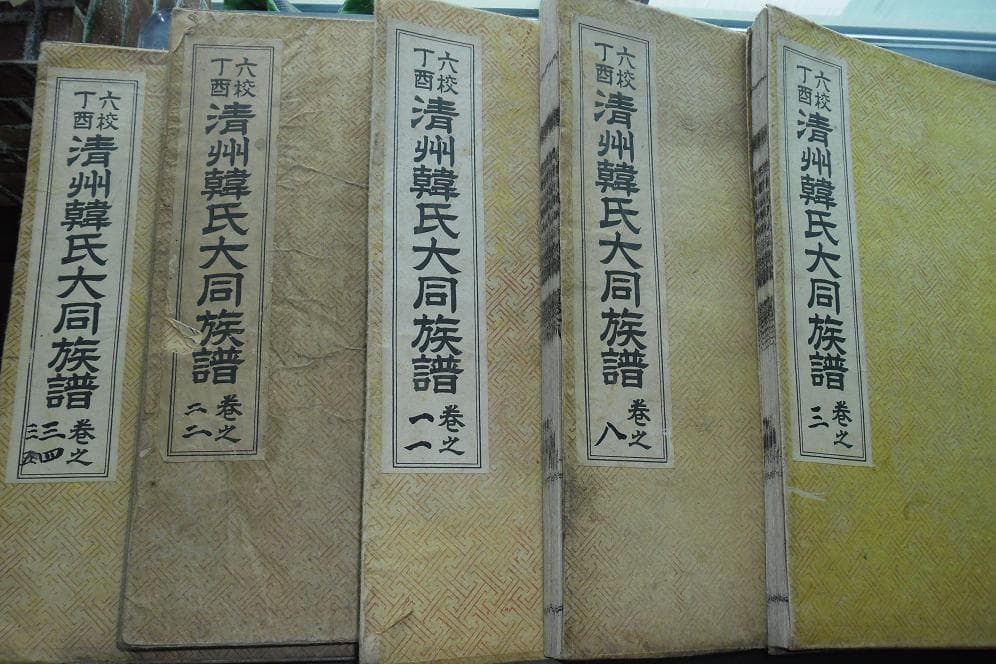 六校
丁酉
清州韓氏大同族譜
卷之
三四
六校
丁酉
清州韓氏大同族譜
卷之
二二
六校
丁酉
清州韓氏大同族譜
卷之
一一
六校
丁酉
清州韓氏大同族譜
卷之
八
六校
丁酉
清州韓氏大同族譜
卷之
三